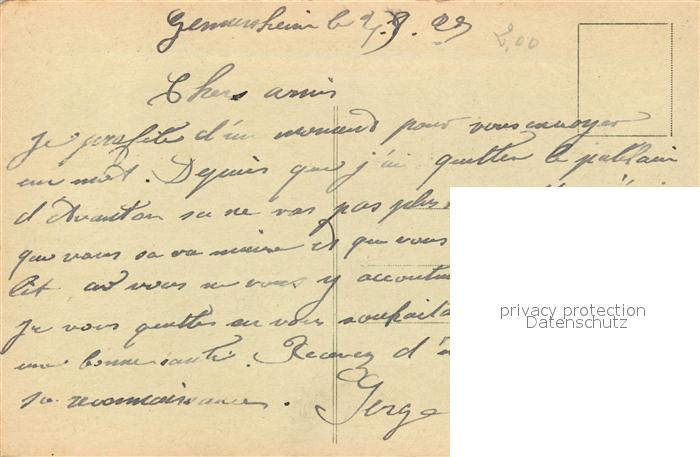 Germersheim le 7.9.29
2,00
Chers amis
Je profite d'un moment pour vous envoyer
un mot. Depuis que j'ai quitter le patelain
d'Avanton sa ne vas pas plus
que vous sa va mieux et que vous
lit car vous ne vous y accoutu
Je vous quittes en vous souhaita
une bonne santé. Recevez d'
sa reconnaissances.
privacy protection
Datenschutz